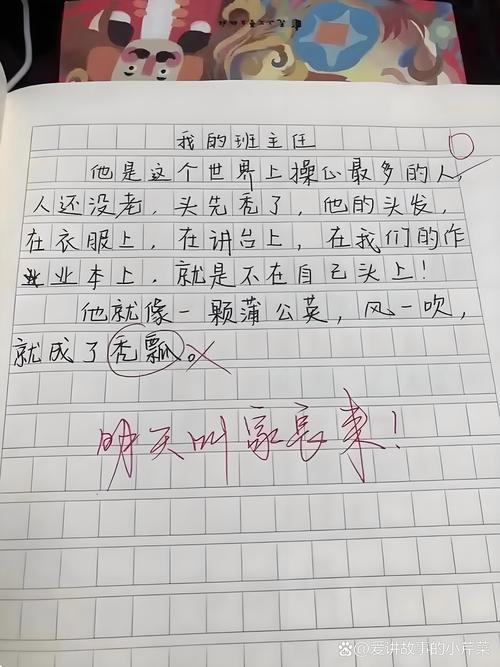 我的班主任
他是这个世界上操心最多的人,
人还没老,头先秃了,他的头发,
在衣服上,在讲台上,在我们的作
业业本上,就是不在自己头上!
他就像一颗蒲公英,风一吹,
就成了秃瓢。
明天叫家长来!
百家号/爱讲故事的小芹菜